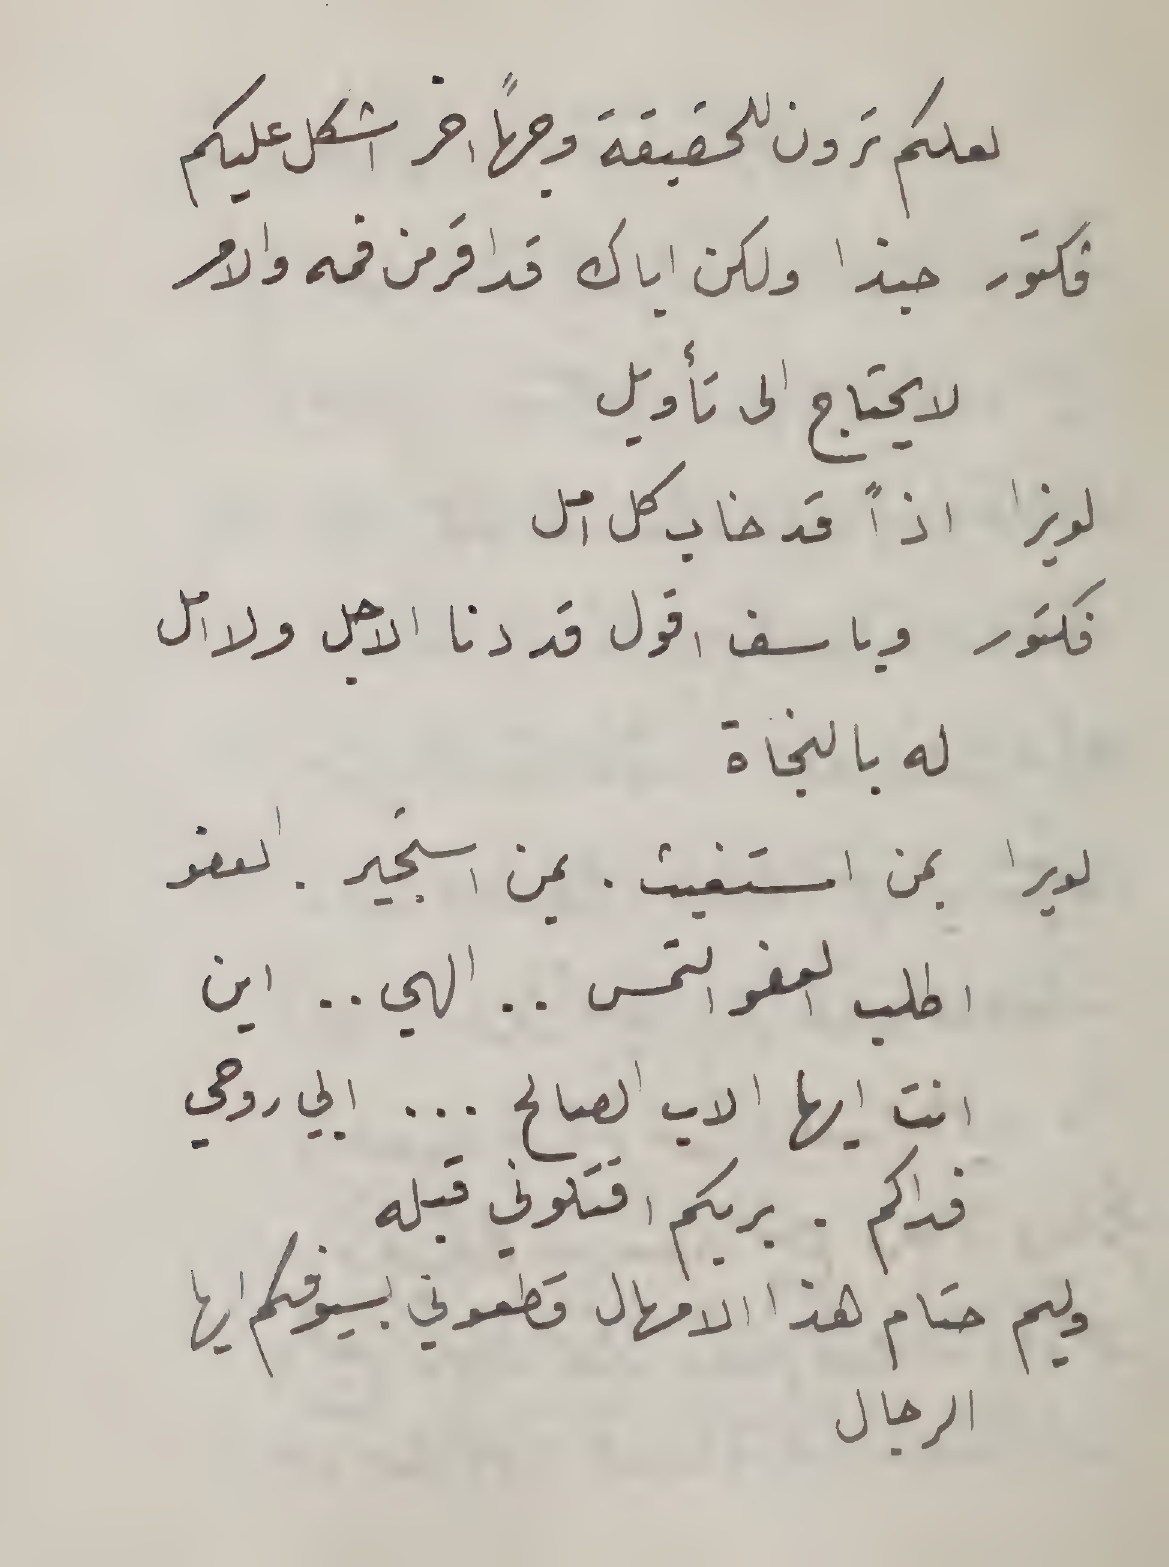 لعلكم ترون للحقيقة وجهاً اخر اشكل عليكم
فكتور حبذا ولكن اباك قد اقر من فمه والامر
لا يحتاج الى تأويل
لويزا اذاً قد خاب كل امل
فكتور وباسف اقول قد دنا الاجل ولا امل
له بالنجاة
لويزا بمن استغيث . بمن استجير . العفو
اطلب العفو التمس .. الهي .. اين
انت ايها الاب الصالح ... ابي روحي
فداكم . بربكم اقتلوني قبله
وليم حتام هذا الامهال قطعوني بسيوفكم ايها
الرجال